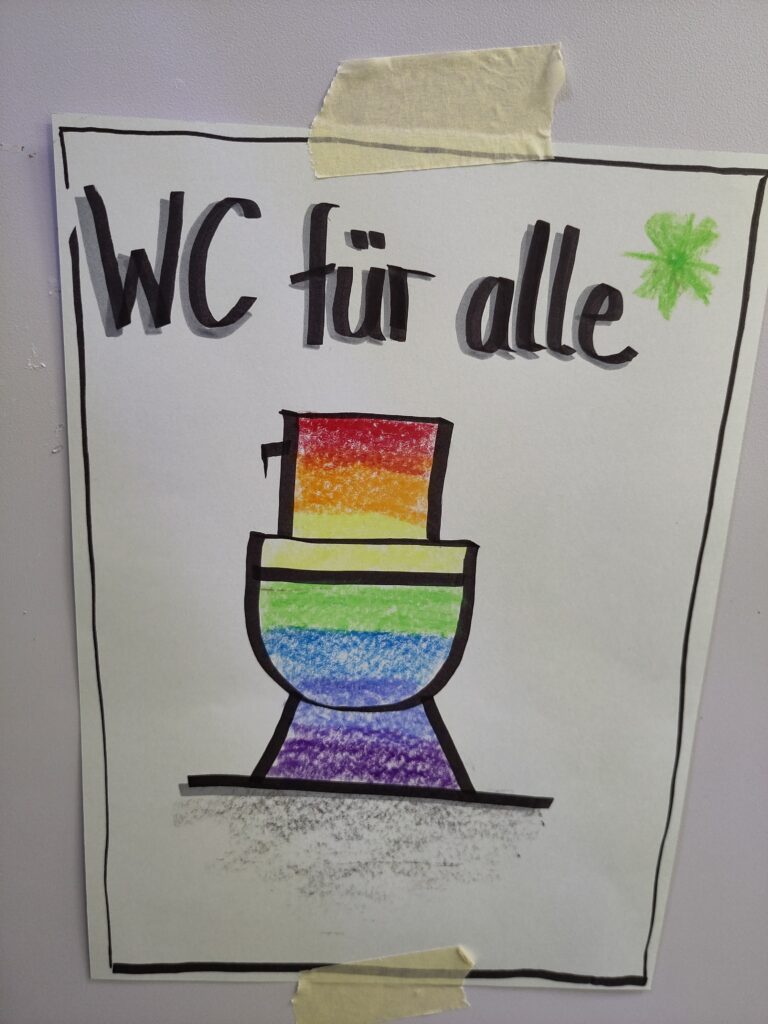 WC für alle*